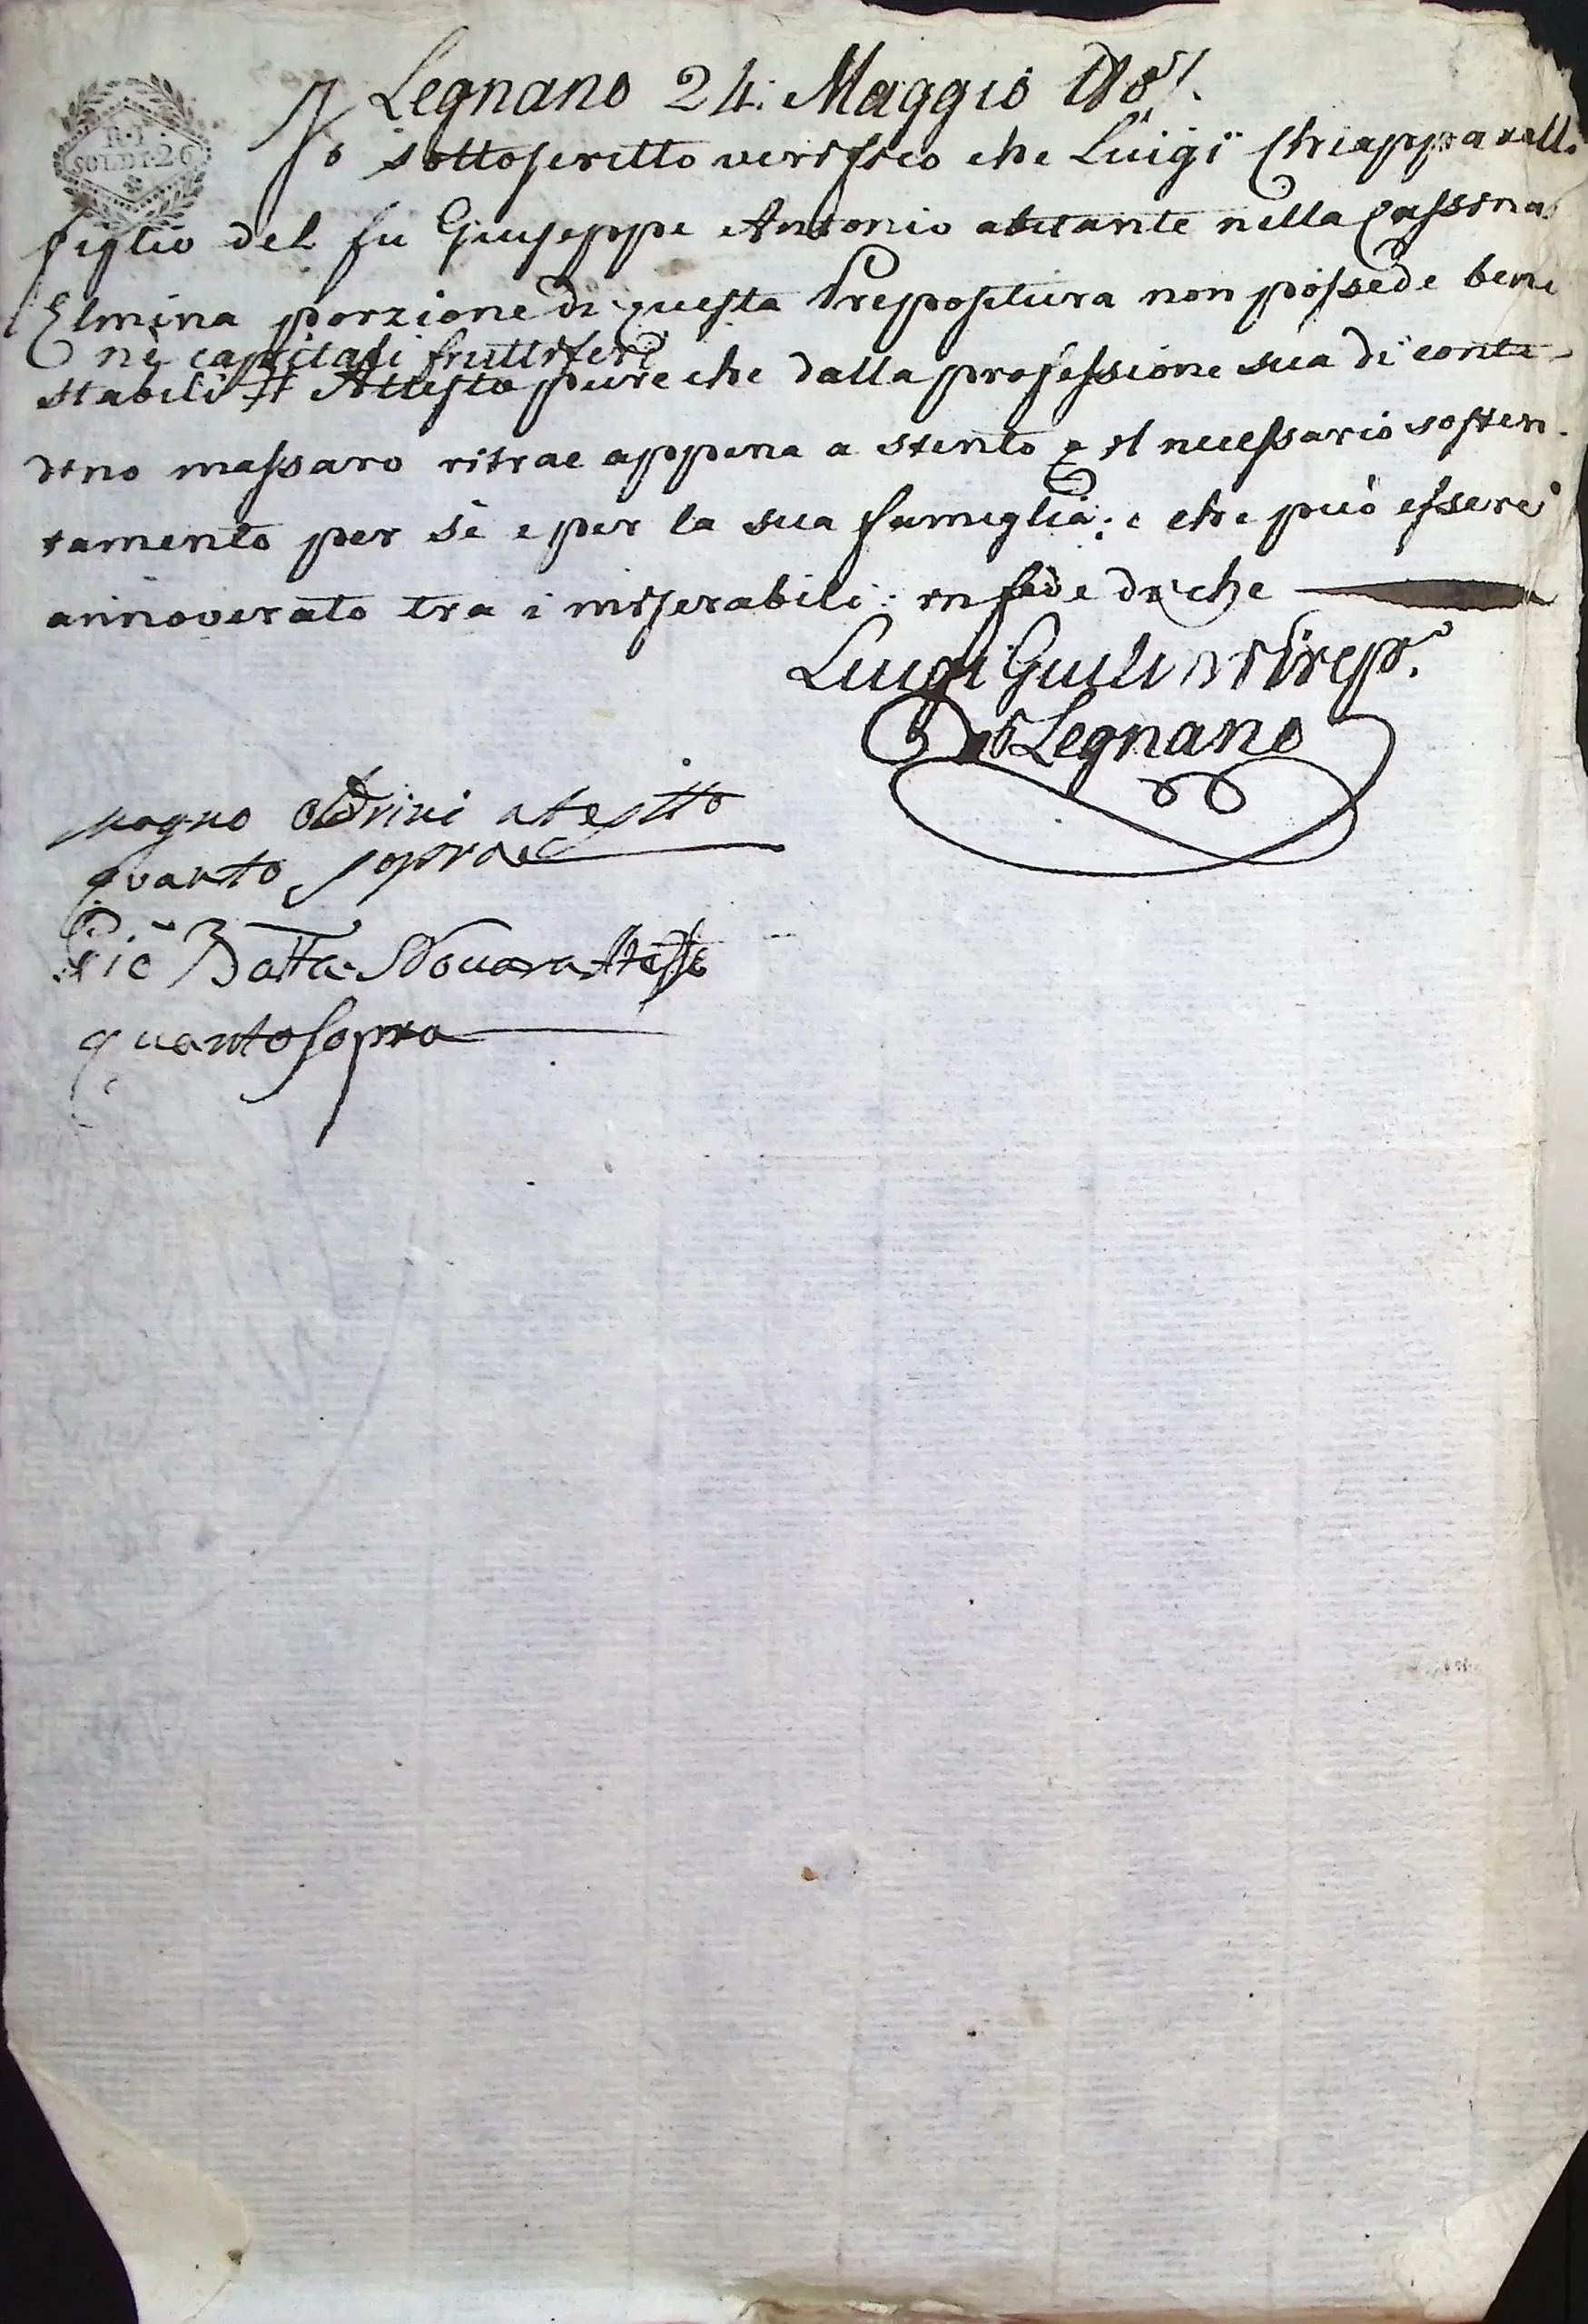 R. I.
SOLDI. 26
Legnano 24: Maggio
Io sottoscritto verifico che Luigi Chiapparelli
figlio del fu Giuseppe Antonio abitante nella Cassina
Elmina porzione di questa Prepositura non possede beni
nè capitali fruttiferi
stabili # Attesto pure che dalla professione sua di conta-
dino massaro ritrae appena a stento il necessario sosten-
tamento per sè e per la sua famiglia: e che può essere
annoverato tra i miserabili: in fede di che
Luigi Prep.o
Di Legnano
Magno Oldrini atestto
quanto sopra
Gio Batta Novara Atesto
quanto sopra